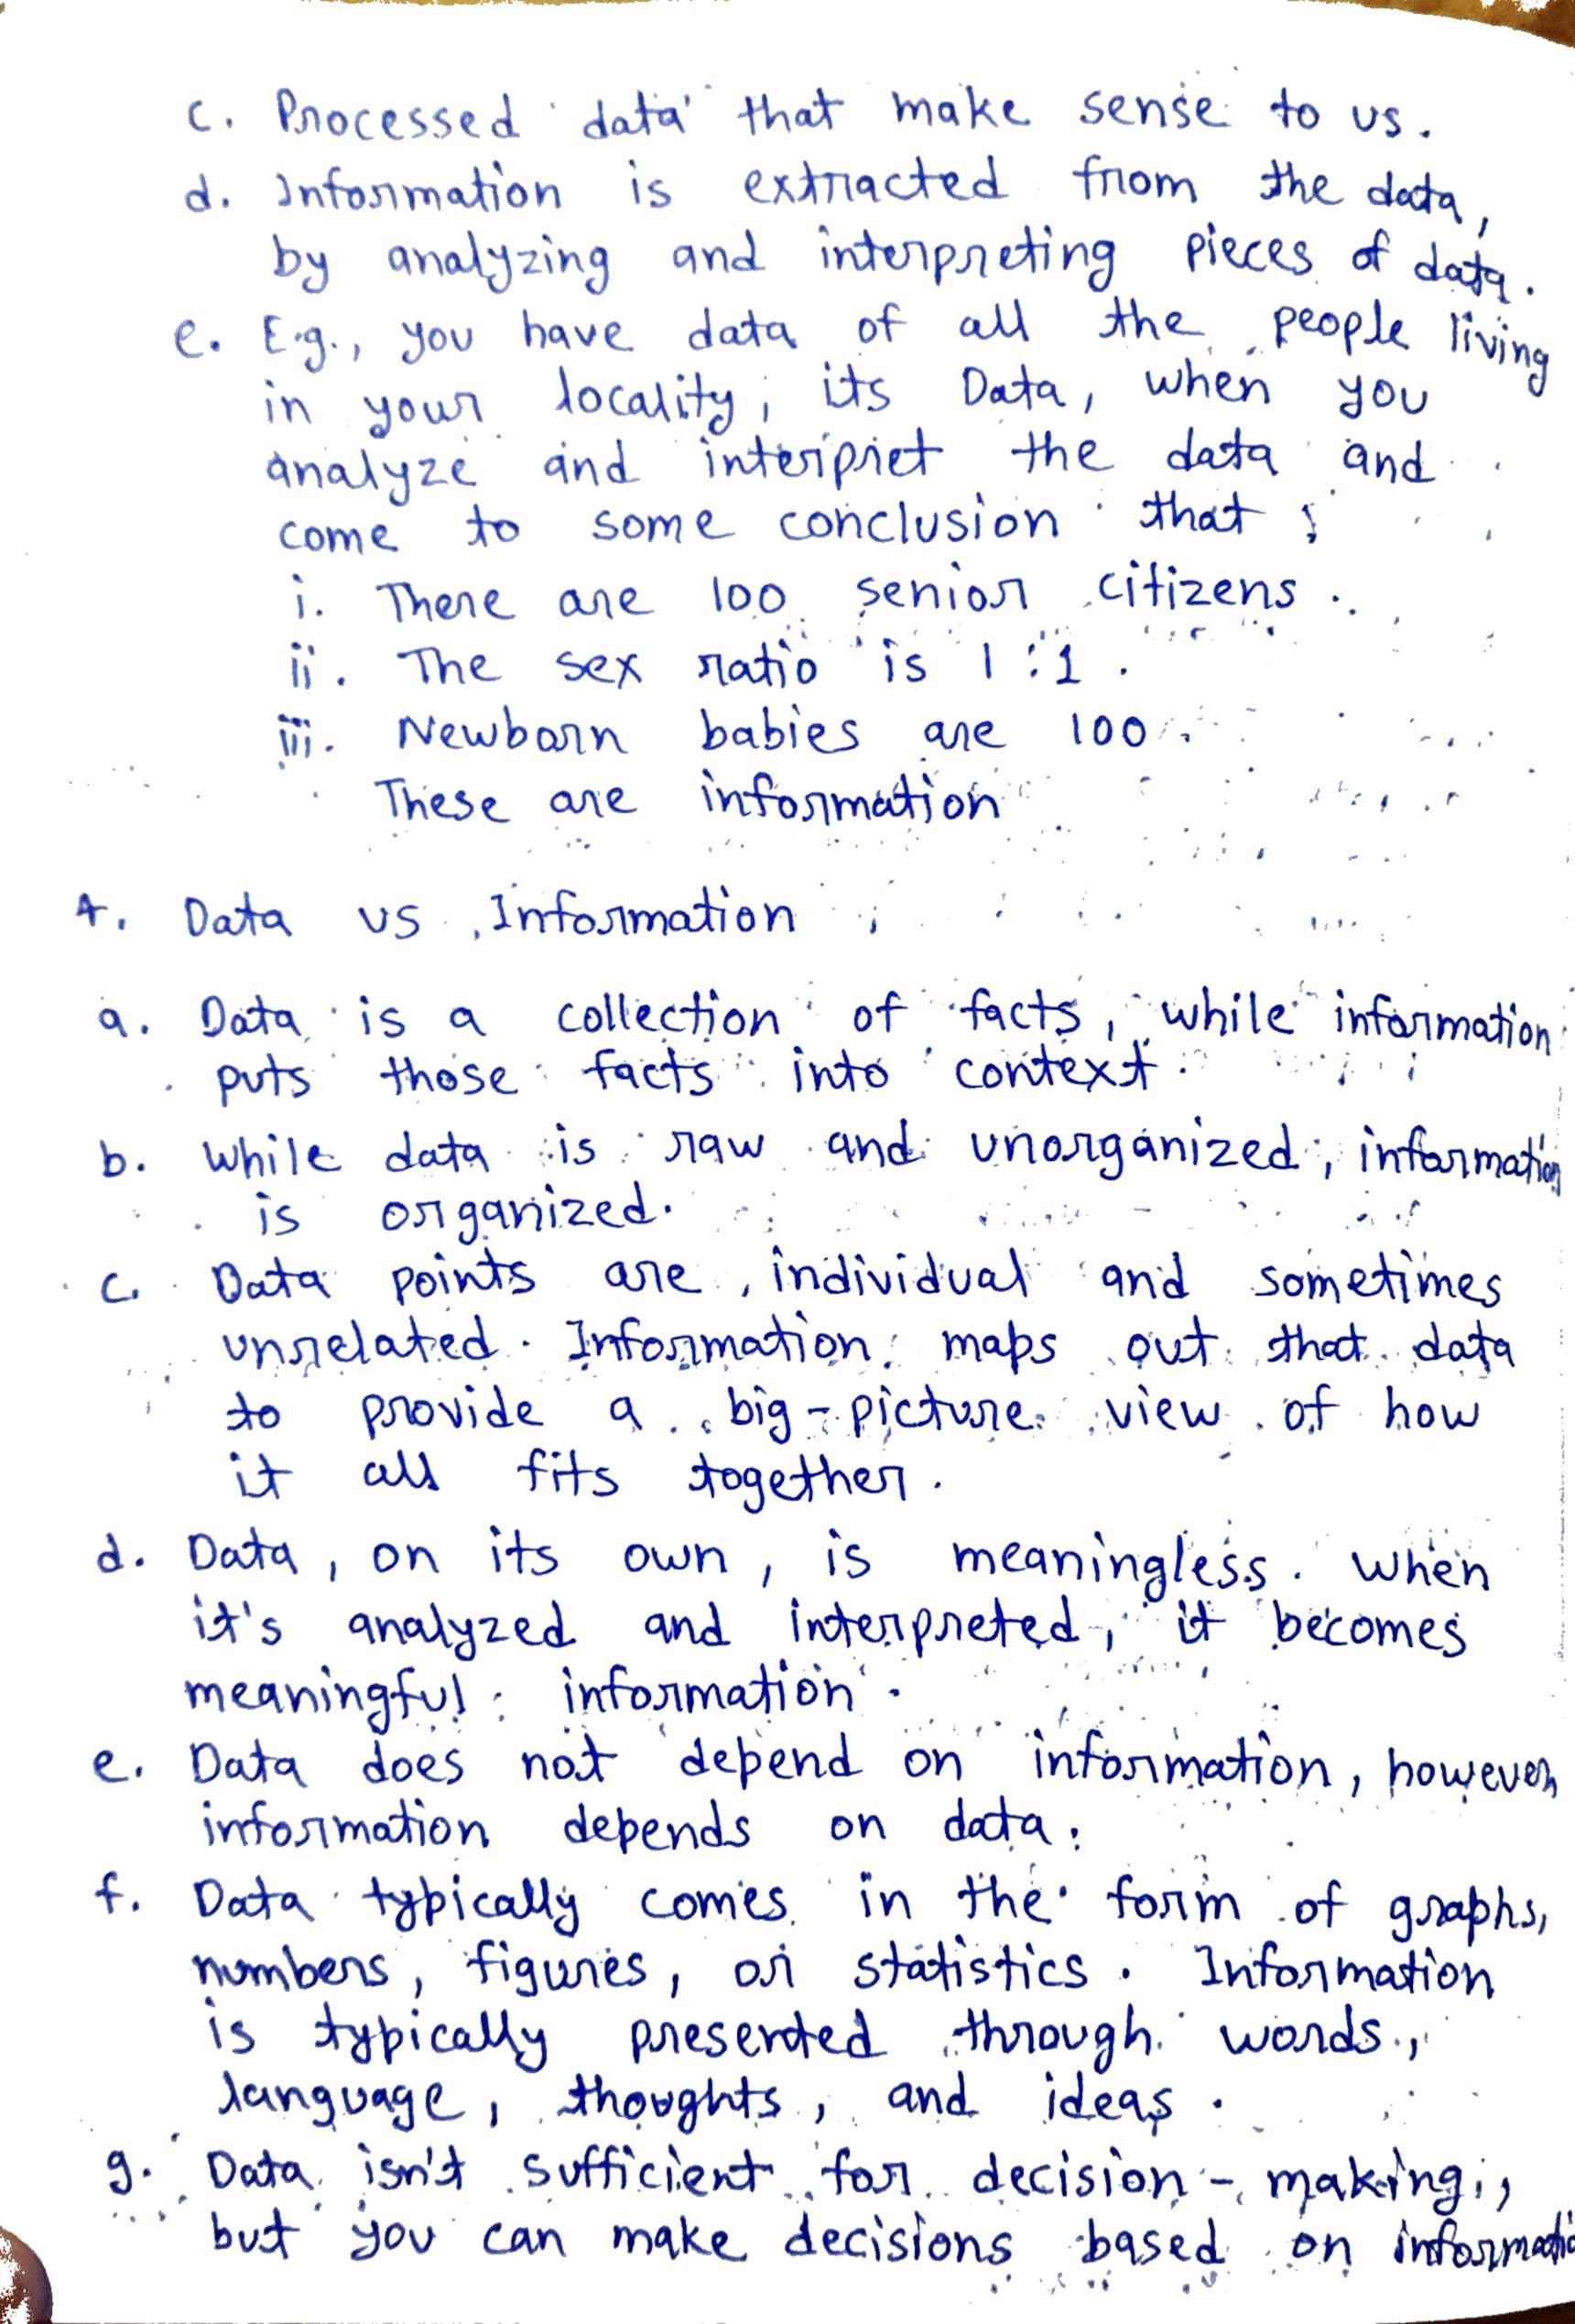 c. Processed data that make sense to us.
d. Information is extracted from the data,
by analyzing and interpreting pieces of data.
e. E.g., you have data of all the people living
in your locality, its Data, when you
analyze and interpret the data and
come to some conclusion that :
i. There are 100 senior citizens.
ii. The sex ratio is 1:1.
iii. Newborn babies are 100.
These are information
4. Data vs Information
a. Data is a collection of facts, while information
puts those facts into context.
b. While data is raw and unorganized, information
is organized.
c. Data points are individual and sometimes
unrelated. Information maps out that data
to provide a big-picture view of how
it all fits together.
d. Data, on its own, is meaningless. When
it's analyzed and interpreted, it becomes
meaningful information.
e. Data does not depend on information, however
information depends on data.
f. Data typically comes in the form of graphs,
numbers, figures, or statistics. Information
is typically presented through words,
language, thoughts, and ideas.
g. Data isn't sufficient for decision-making,
but you can make decisions based on informatio